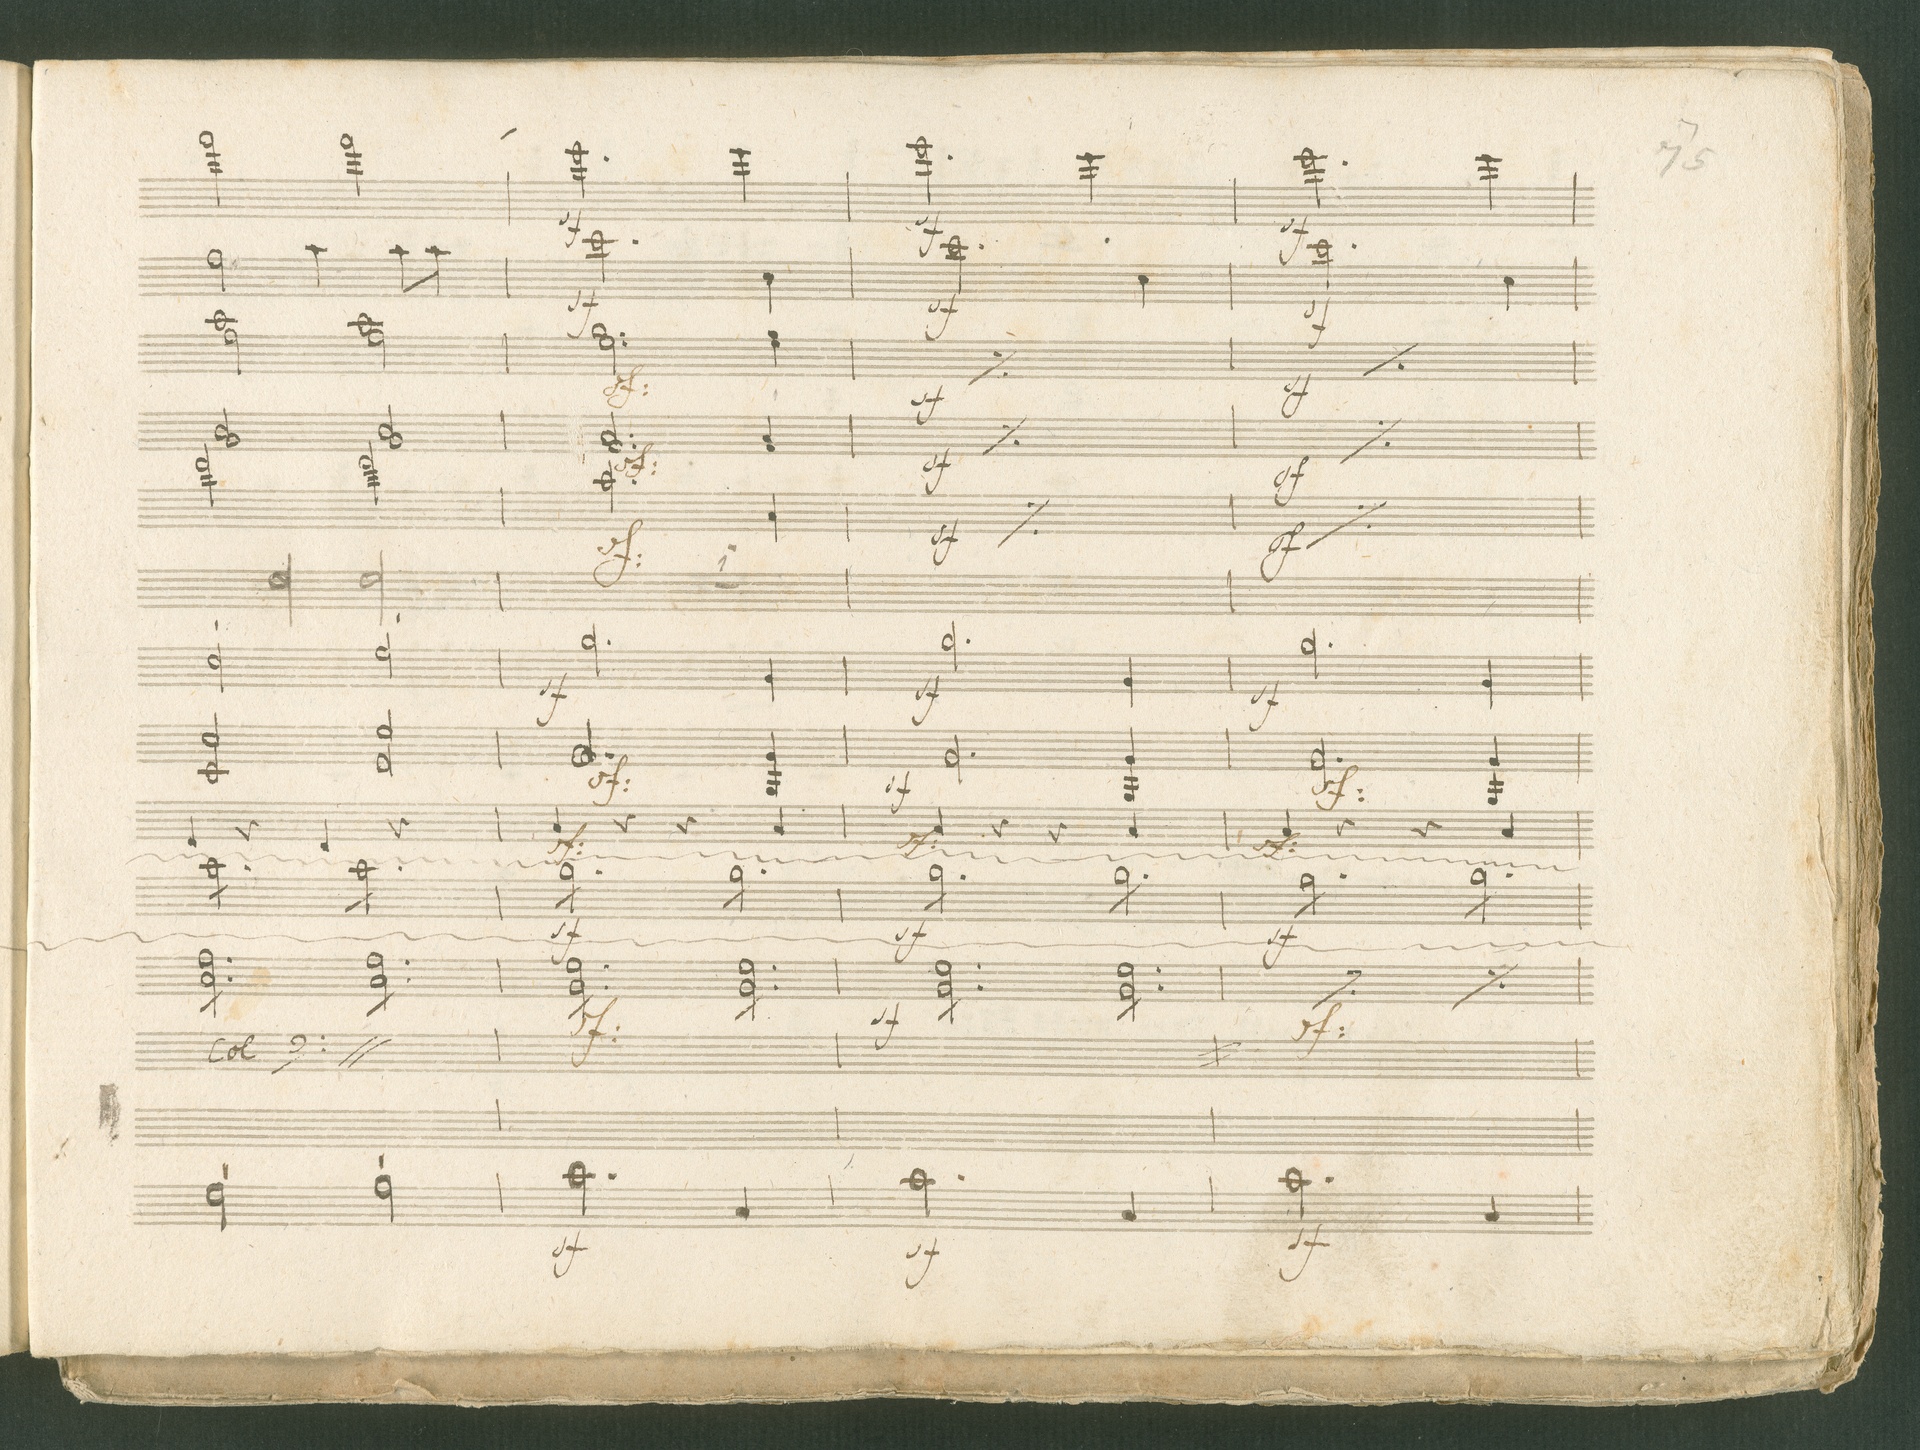 75
sf sf sf
sf sf sf
sf: sf sf
sf: sf sf
sf: sf sf
sf sf sf
sf: sf sf:
sf: sf: sf:
sf sf sf
sf: sf sf:
Col 𝄢: //
sf sf sf